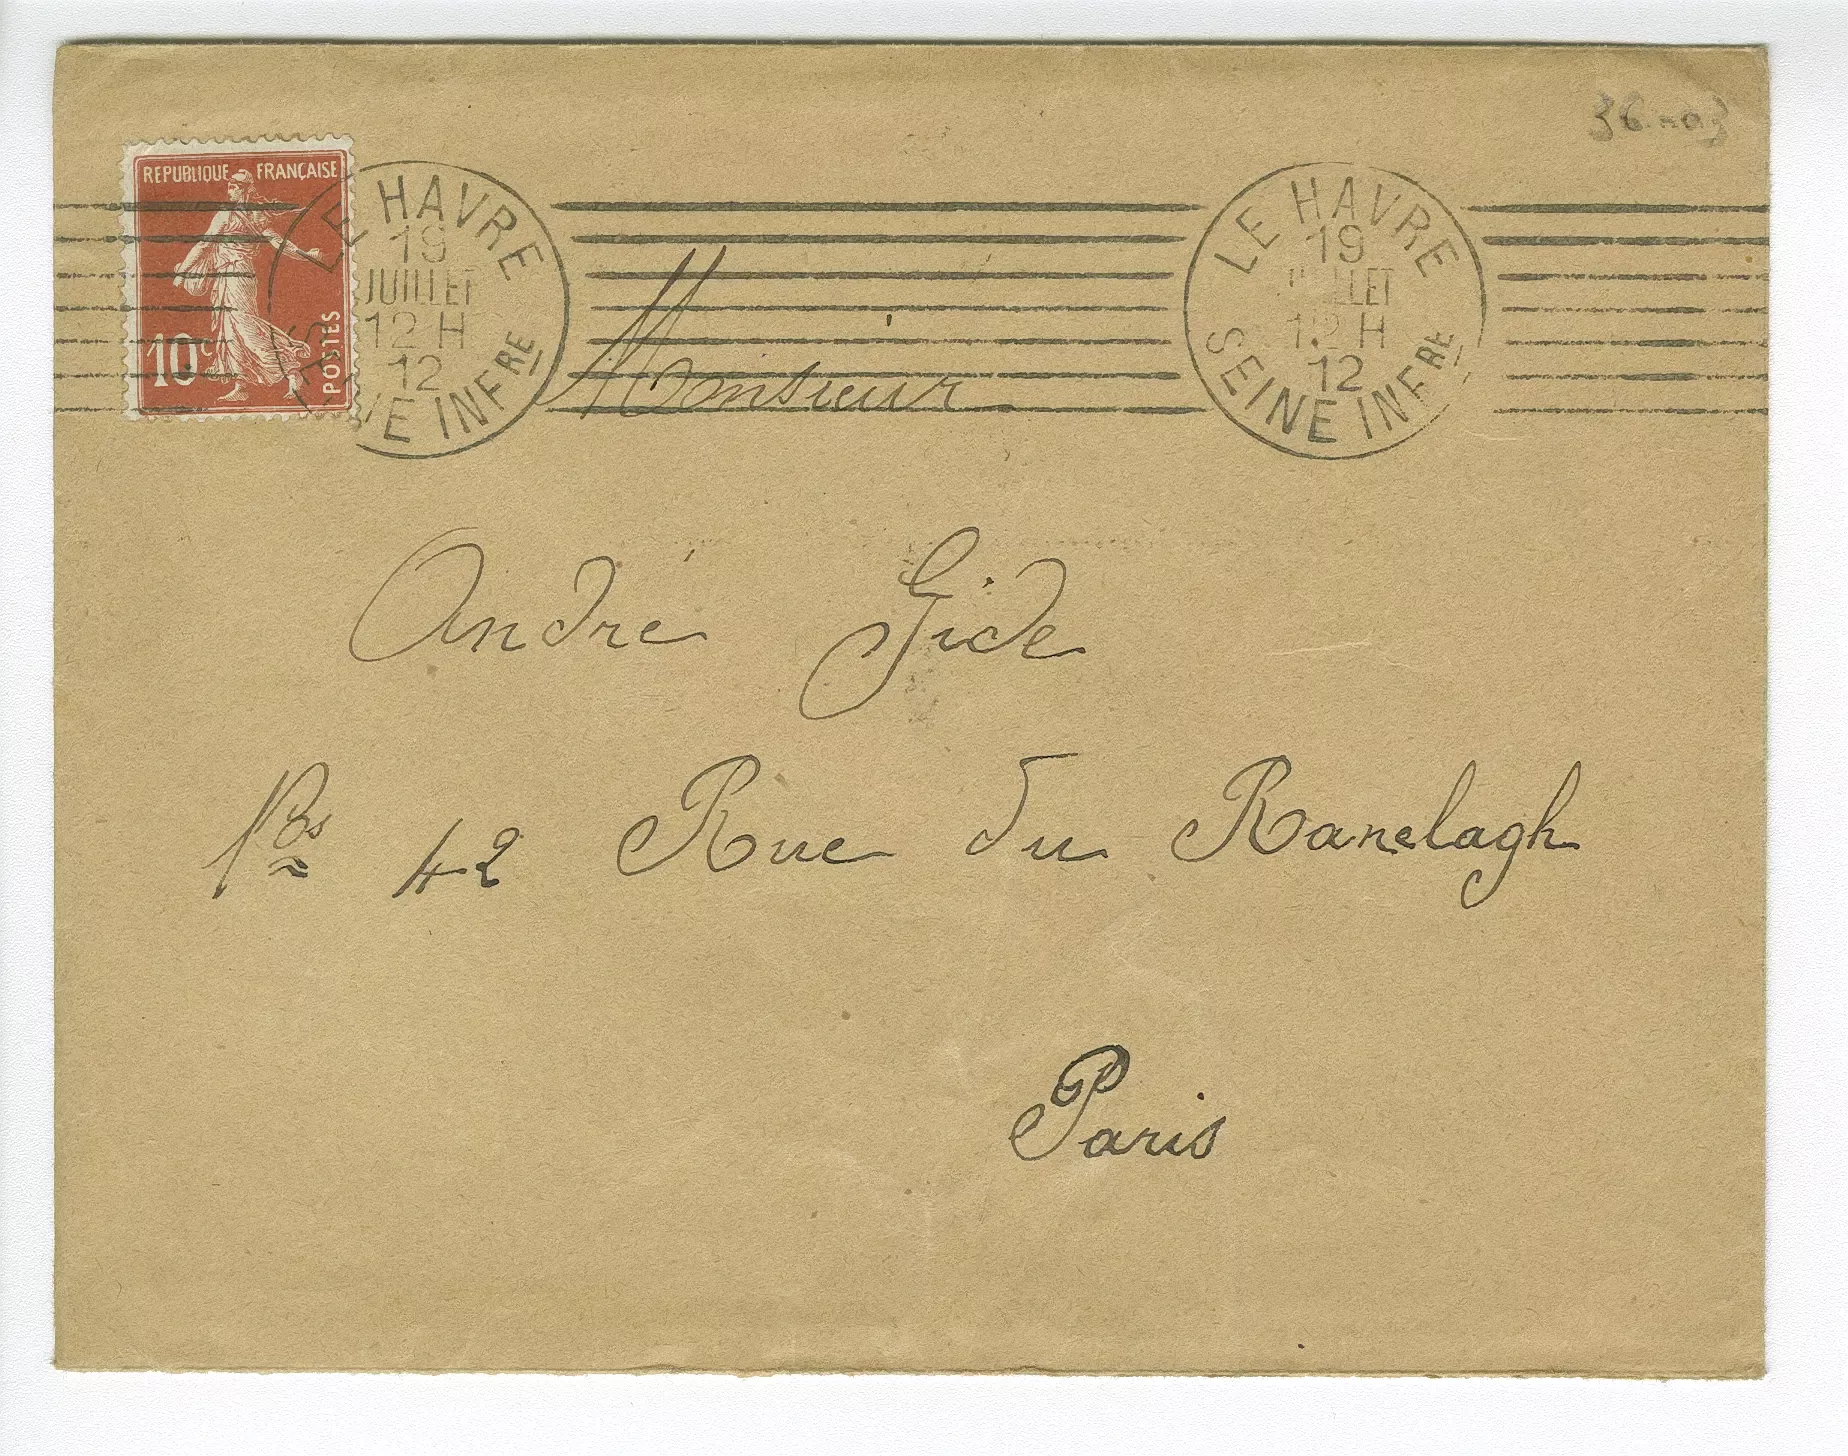 REPUBLIQUE FRANÇAISE
10c
POSTES
LE HAVRE
19
JUILLET
12 H
12
SEINE INFRE
LE HAVRE
19
JUILLET
12 H
12
SEINE INFRE
Monsieur
André Gide
42 Rue du Ranelagh
Paris